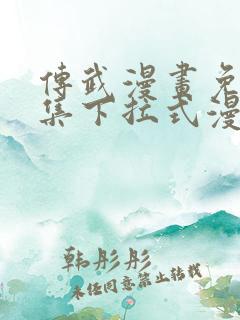 傅武漫畫免
集下拉式漫
韩彤彤
未经同意禁止转载